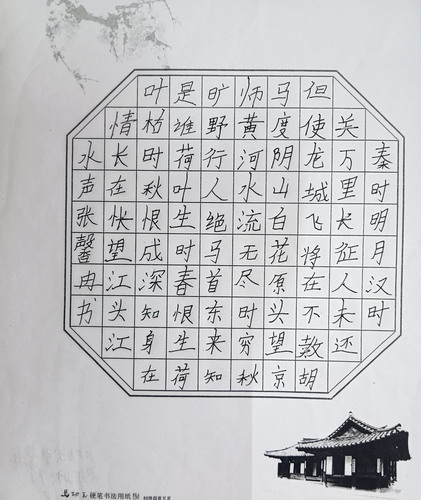 秦时明月汉时
关万里长征人未还
但使龙城飞将在不教胡
马度阴山白花原头望京
师黄河水流无尽时穷秋
旷野行人绝马首东来知
是谁荷叶生时春恨生荷
叶枯时秋恨成深知身在
情长在怅望江头江
水声张馨冉书
硬笔书法用纸